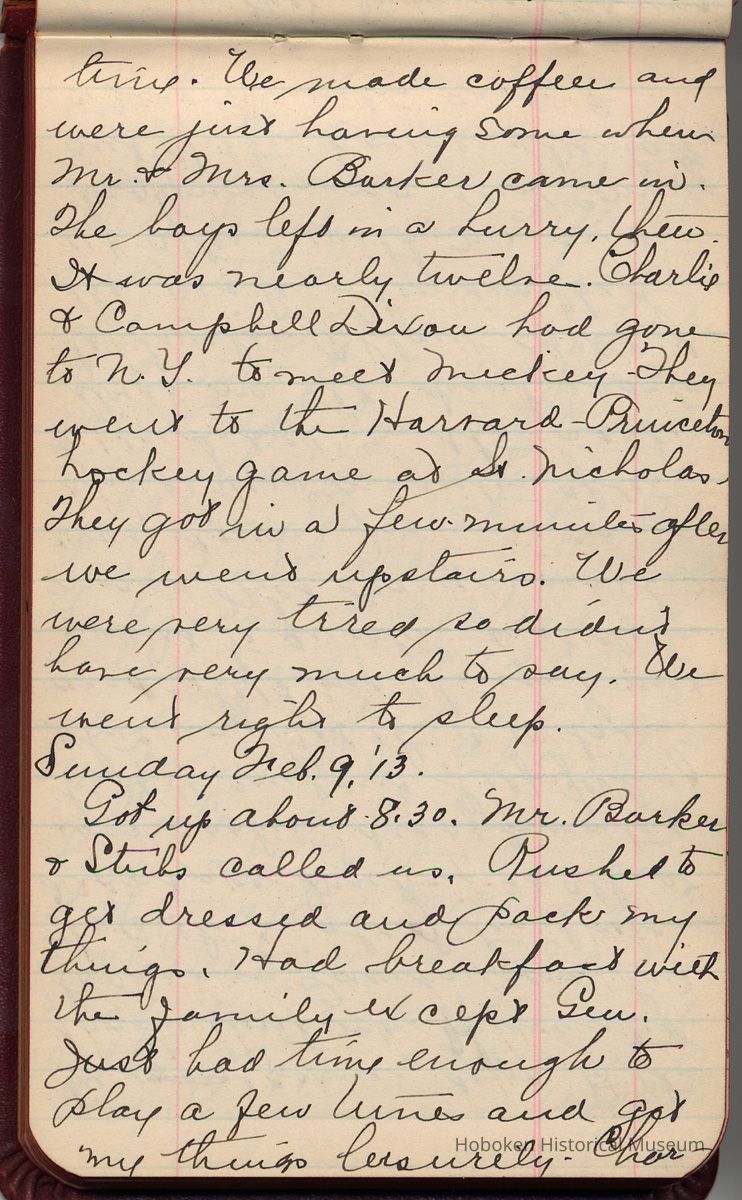 time. We made coffee and
were just having some when
Mr. & Mrs. Barker came in.
The boys left in a hurry, then.
It was nearly twelve. Charlie
& Campbell Dixon had gone
to N.Y. to meet Mickey - They
went to the Harvard-Princeton
hockey game at St. Nicholas.
They got in a few minutes after
we went upstairs. We
were very tired so didn't
have very much to say. We
went right to sleep.
Sunday Feb. 9, '13.
Got up about 8.30. Mr. Barker
& Stubs called us. Rushed to
get dressed and pack my
things. Had breakfast with
the family except Gen.
Just had time enough to
play a few tunes and get
my things leisurely. Char
Hoboken Historical Museum